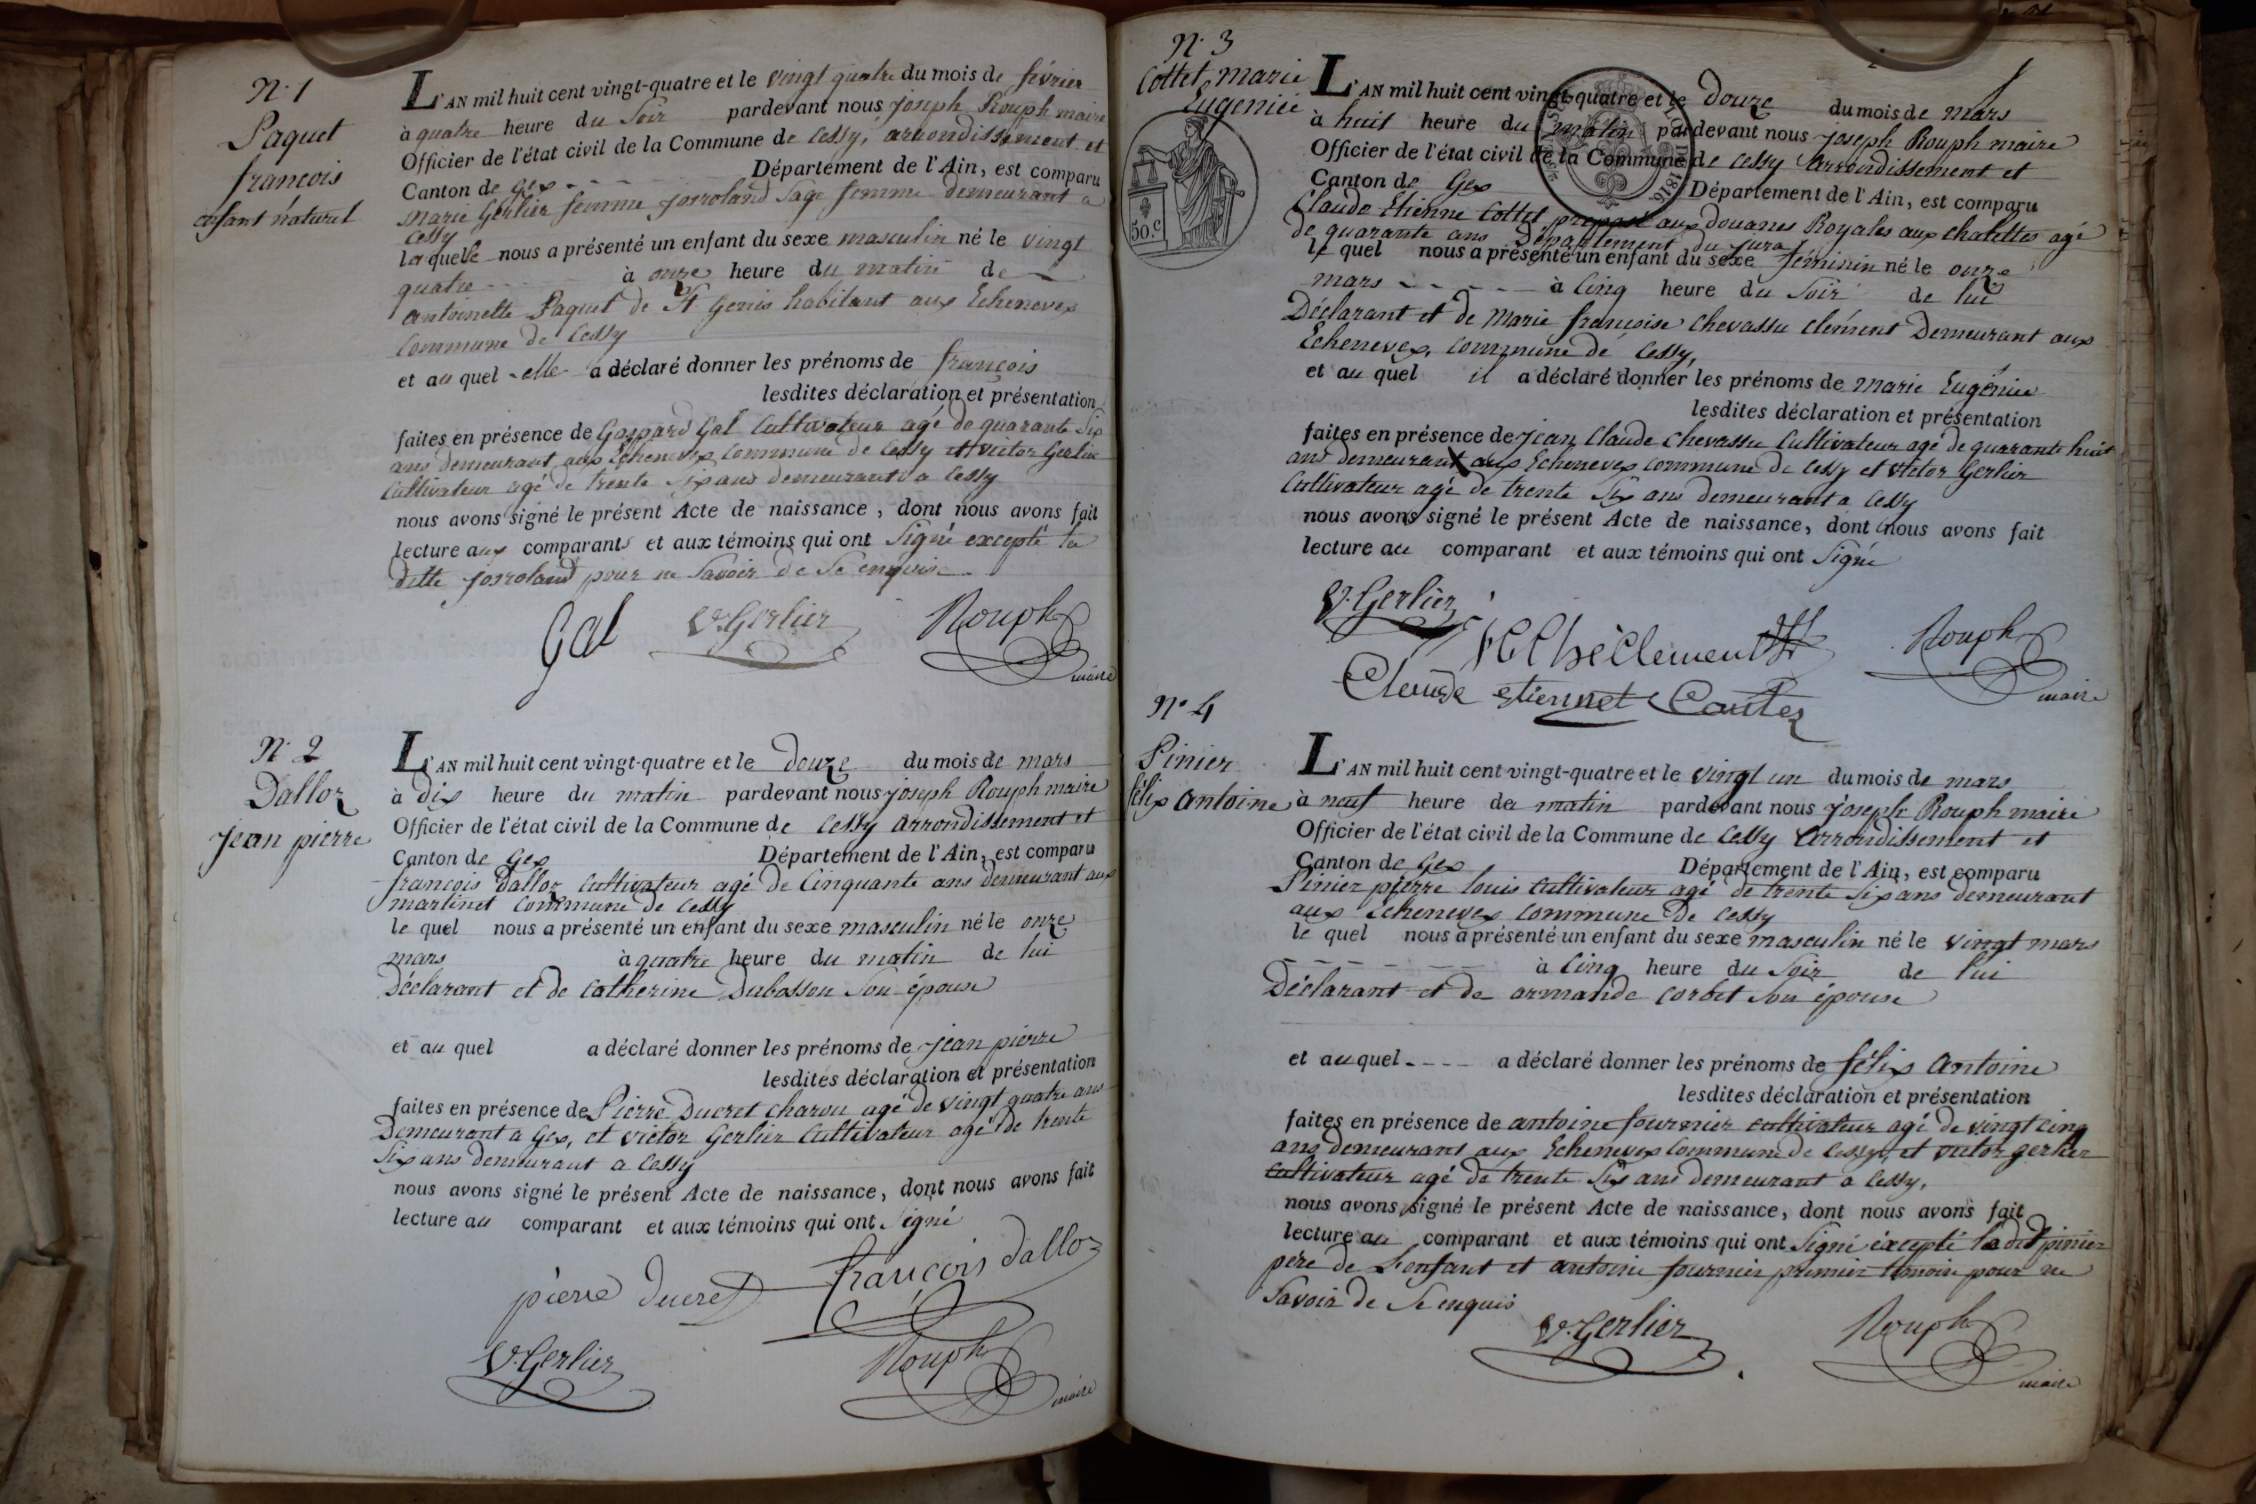 N. 1
Paquet
françois
enfant naturel
L'AN mil huit cent vingt-quatre et le vingt quatre du mois de février
à quatre heure du Soir pardevant nous joseph Rouph maire
Officier de l'état civil de la Commune de Cessy, arrondissement et
Canton de Gex Département de l'Ain, est comparu
Marie Gerlier femme josroland Sage femme demeurant a
Cessy
laquelle nous a présenté un enfant du sexe masculin né le vingt
quatre à onze heure du matin de
antoinette Paquet de St Genis habitant aux Echenevex
Commune de Cessy
et au quel elle a déclaré donner les prénoms de françois
lesdites déclaration et présentation
faites en présence de Gaspard Gal Cultivateur agé de quarante Six
ans demeurant aux Echenevex Commune de Cessy et victor Gerlier
Cultivateur agé de trente Six ans demeurant a Cessy
nous avons signé le présent Acte de naissance, dont nous avons fait
lecture aux comparants et aux témoins qui ont Signé excepté la
ditte josroland pour ne Savoir de Se enquise
Gal V. Gerlier Rouph
maire
N. 2
Dalloz
jean pierre
L'AN mil huit cent vingt-quatre et le douze du mois de mars
à dix heure du matin pardevant nous joseph Rouph maire
Officier de l'état civil de la Commune de Cessy arrondissement et
Canton de Gex Département de l'Ain, est comparu
françois Dalloz cultivateur agé de Cinquante ans demeurant aux
martinet commune de Cessy
le quel nous a présenté un enfant du sexe masculin né le onze
mars à quatre heure du matin de lui
Déclarant et de Catherine Dubasson Son épouse
et au quel a déclaré donner les prénoms de jean pierre
lesdites déclaration et présentation
faites en présence de Pierre Ducret charon agé de vingt quatre ans
Demeurant a Gex, et victor Gerlier Cultivateur agé de trente
Six ans demeurant a Cessy
nous avons signé le présent Acte de naissance, dont nous avons fait
lecture au comparant et aux témoins qui ont Signé
pierre ducret françois dalloz
V. Gerlier Rouph
maire
N. 3
Cottet marie
Eugenie
50.c
1816
L'AN mil huit cent vingt-quatre et le douze du mois de mars
à huit heure du matin pardevant nous joseph Rouph maire
Officier de l'état civil de la Commune de Cessy arrondissement et
Canton de Gex Département de l'Ain, est comparu
Claude Etienne Cottet préposé aux douanes Royales aux chalettes agé
de quarante ans Département du jura
le quel nous a présenté un enfant du sexe féminin né le onze
mars à Cinq heure du Soir de lui
Déclarant et de Marie françoise Chevassu Clément Demeurant aux
Echenevex, commune de Cessy,
et au quel il a déclaré donner les prénoms de marie Eugénie
lesdites déclaration et présentation
faites en présence de jean Claude Chevassu Cultivateur agé de quarante huit
ans demeurant aux Echenevex commune de Cessy et victor Gerlier
Cultivateur agé de trente Six ans demeurant a Cessy
nous avons signé le présent Acte de naissance, dont nous avons fait
lecture au comparant et aux témoins qui ont Signé
V. Gerlier
Rouph
Claude etiennet Cautez
maire
N. 4
Pinier
félix Antoine
L'AN mil huit cent vingt-quatre et le vingt un du mois de mars
à neuf heure du matin pardevant nous joseph Rouph maire
Officier de l'état civil de la Commune de Cessy Arrondissement et
Canton de Gex Département de l'Ain, est comparu
Pinier pierre louis cultivateur agé de trente Six ans demeurant
aux Echenevex Commune de Cessy
le quel nous a présenté un enfant du sexe masculin né le vingt mars
à Cinq heure du Soir de lui
Déclarant et de armande Corbet Son épouse
et au quel a déclaré donner les prénoms de félix Antoine
lesdites déclaration et présentation
faites en présence de antoine fournier cultivateur agé de vingt cinq
ans demeurant aux Echenevex Commune de Cessy, et victor gerlier
Cultivateur agé de trente Six ans demeurant a Cessy,
nous avons signé le présent Acte de naissance, dont nous avons fait
lecture au comparant et aux témoins qui ont Signé excepté le dit pinier
pere de L'enfant et antoine fournier premier témoin pour ne
Savoir de Se enquis
V. Gerlier Rouph
maire